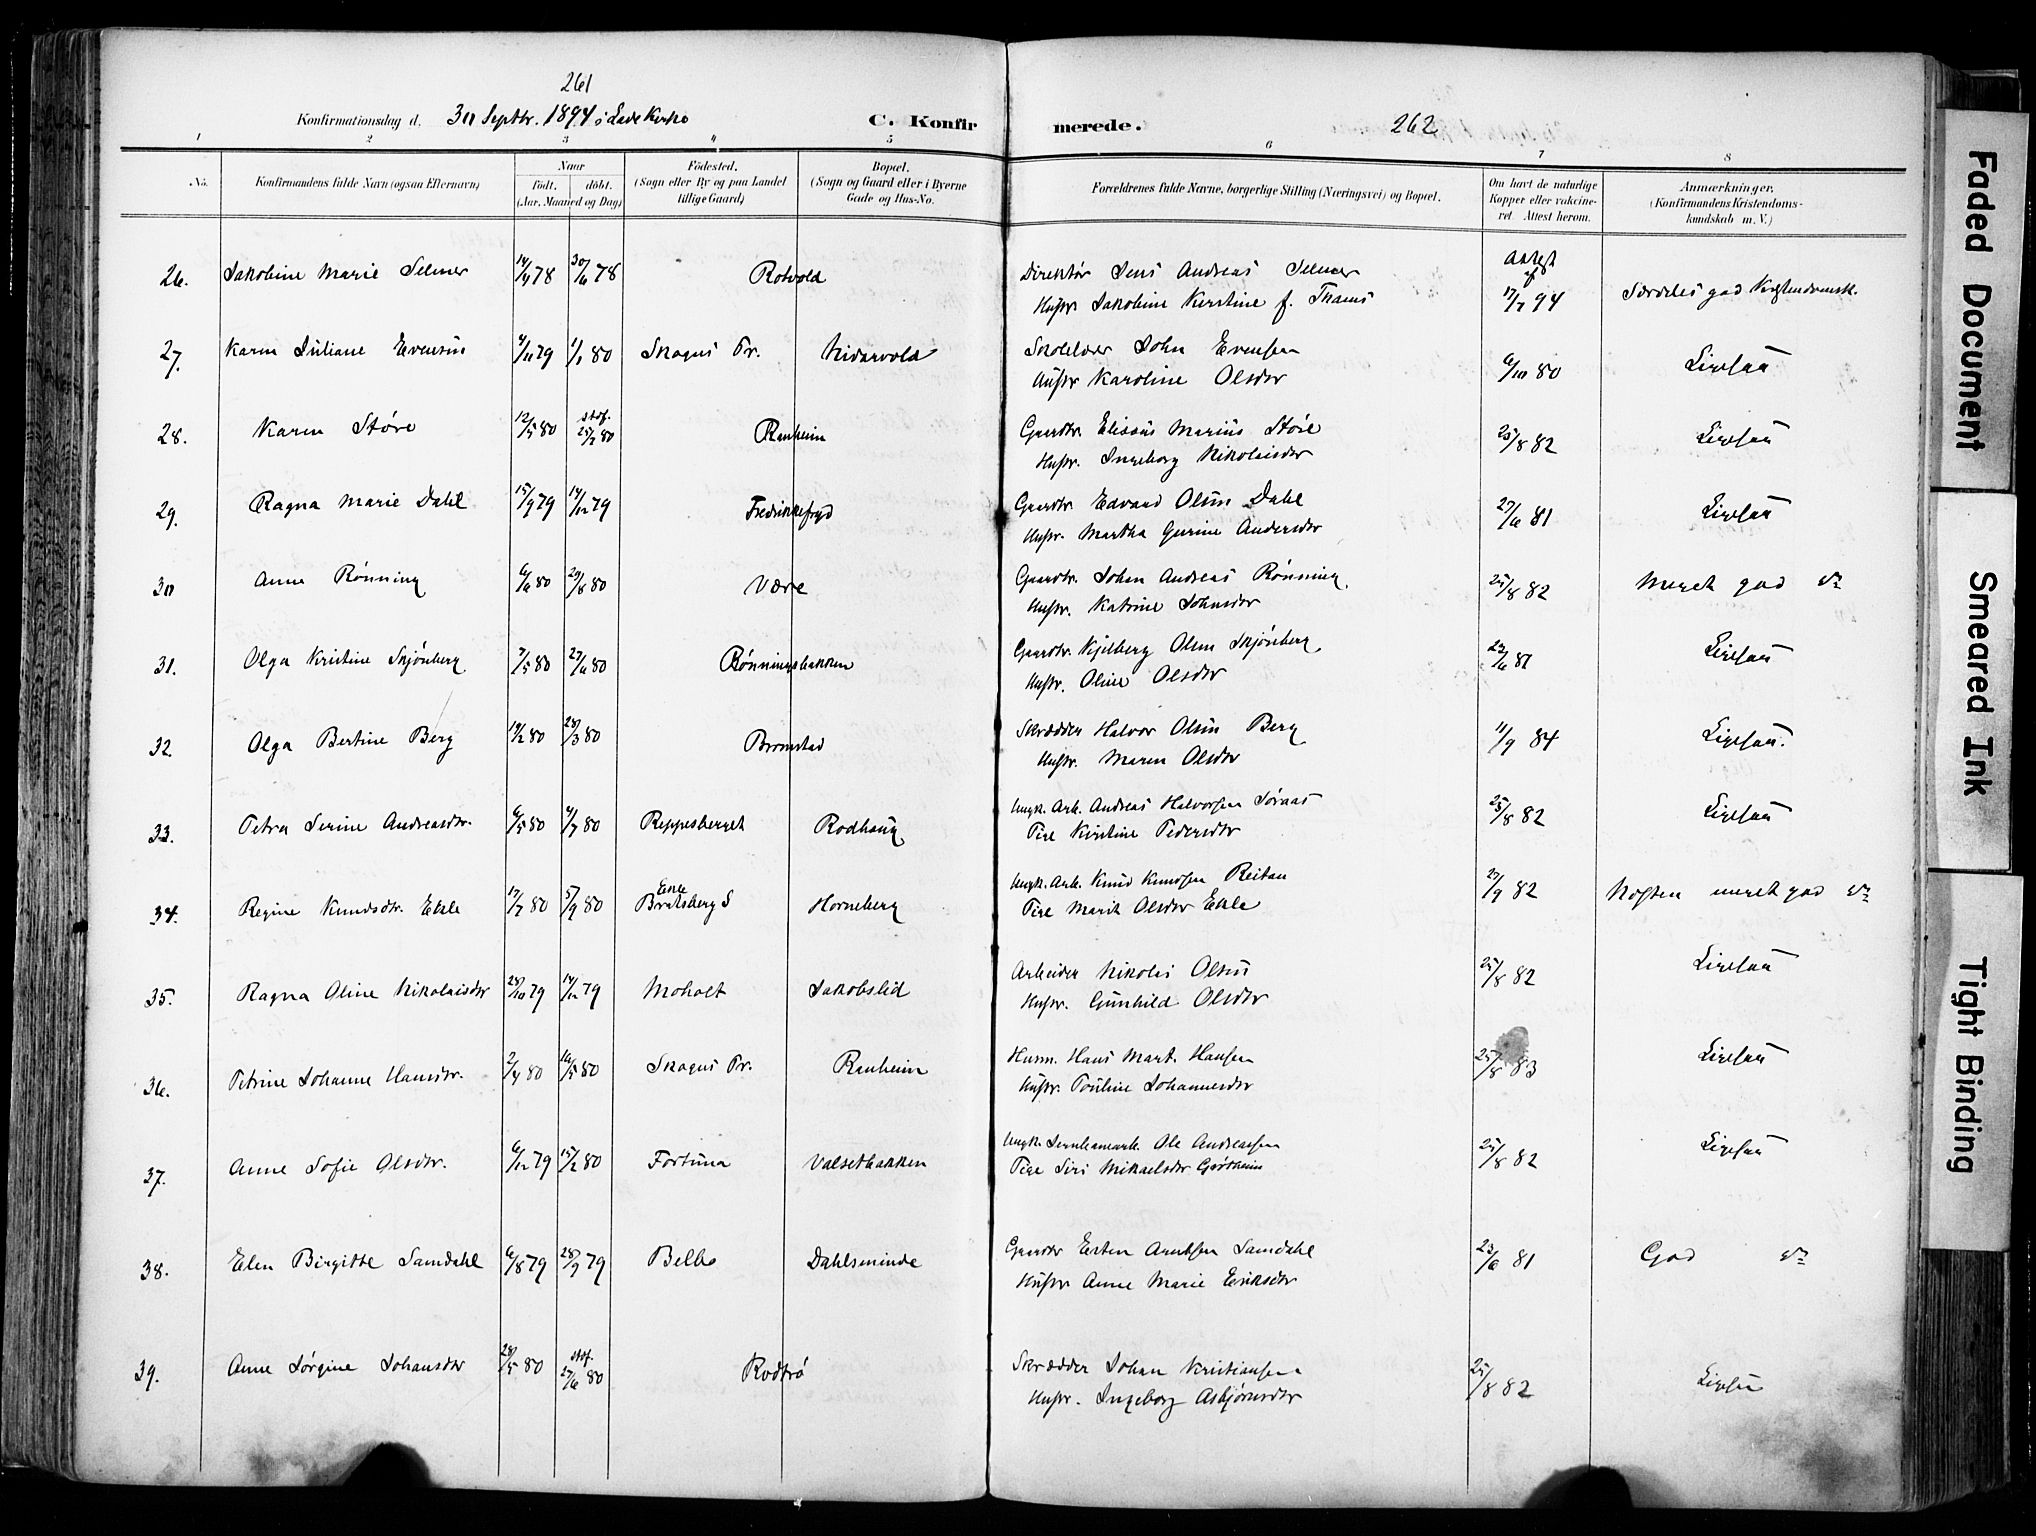 261
Konfirmationsdag d. 30 Septbr. 1894 i Lade Kirke
C. Konfirmerede.
262
1 2 3 4 5 6 7 8
No.
Konfirmandens fulde Navn (ogsaa Efternavn)
Naar
födt. döbt.
(Aar, Maaned og Dag)
Födested.
(Sogn eller By og paa Landet
tillige Gaard)
Bopæl.
(Sogn og Gaard eller i Byerne
Gade og Hus-No.
Forældrenes fulde Navne, borgerlige Stilling (Næringsvei) og Bopæl.
Om havt de naturlige
Kopper eller vakcine-
ret. Attest herom.
Anmærkninger.
(Konfirmandens Kristendoms-
kundskab m. V.)
26. Jakobine Marie Selmer 14/4 78 30/6 78 Rotvold Direktør Jens Andreas Selmer Attest af 17/7 94 Særdeles god Kristendomsk.
Hustr. Jakobine Kirstine f. Thams
27. Karen Juliane Evensen 4/11 79 1/1 80 Skogns Pr. Nidarvold Skolelærer John Evensen 6/10 80 Ligesaa
Hustr Karoline Olsdtr
28. Karen Støre 12/5 80 stdf. 25/7 80 Ranheim Gaardbr. Elisæus Marius Støre 25/8 82 Ligesaa
Hustr. Ingeborg Nikolaisdtr
29. Ragna Marie Dahl 15/9 79 14/12 79 Fredrikkefryd Gaardbr. Edvard Olsen Dahl 27/6 81 Ligesaa
Hustr. Martha Gurine Andersdtr
30 Anne Rønning 6/6 80 29/8 80 Være Gaardbr. Johan Andreas Rønning 25/8 82 Meget god do
Hustr. Katrine Johnsdtr
31. Olga Kristine Skjønberg 7/5 80 27/6 80 Rønningsbakken Gaardbr. Kjelberg Olsen Skjønberg 23/6 81 Ligesaa
Hustr. Oline Olsdtr
32. Olga Bertine Berg 19/2 80 28/3 80 Bromstad Skrædder Halvor Olsen Berg 11/9 84 Ligesaa.
Hustr. Maren Olsdtr
33. Petra Serine Andreasdtr. 6/5 80 4/7 80 Reppesberget Rodhaug Ungk. Arb. Andreas Halvorsen Søraas 25/8 82 Ligesaa
Pige Kirstine Pedersdtr
34. Regine Knudsdtr. Ekle 17/7 80 5/9 80 Ekle Bratsberg S Horneberg Ungk. Arb. Knud Knudsen Reitan 27/9 82 Næsten meget god do
Pige Marit Olsdtr Ekle
35. Ragna Oline Nikolaisdtr 28/10 79 14/12 79 Moholt Jakobslid Arbeider Nikolai Olsen 25/8 82 Ligesaa
Hustr. Gunhild Olsdtr
36. Petrine Johanne Hansdtr. 2/4 80 16/5 80 Skogns Pr. Ranheim Husm. Hans Mart. Hansen 25/8 83 Ligesaa
Hustr. Pouline Johannesdtr
37. Anne Sofie Olsdtr. 6/12 79 15/2 80 Fortuna Valsetbakken Ungk. Jernbanearb. Ole Andreassen 25/8 82 Ligesaa
Pige Siri Mikaelsdtr
38. Elen Birgitte Samdahl 6/8 79 28/9 79 Belbo Dahlsminde Gaardbr Esten Arntsen Samdahl 23/6 81 God do
Hustr Anne Marie Eriksdtr
39. Anne Jørgine Johansdtr 28/5 80 stdf. 27/6 80 Rodtrø Skrædder Johan Kristiansen 25/8 82 Ligesaa
Hustr. Ingeborg Asbjørnsdtr
Faded Document
Smeared Ink
Tight Binding